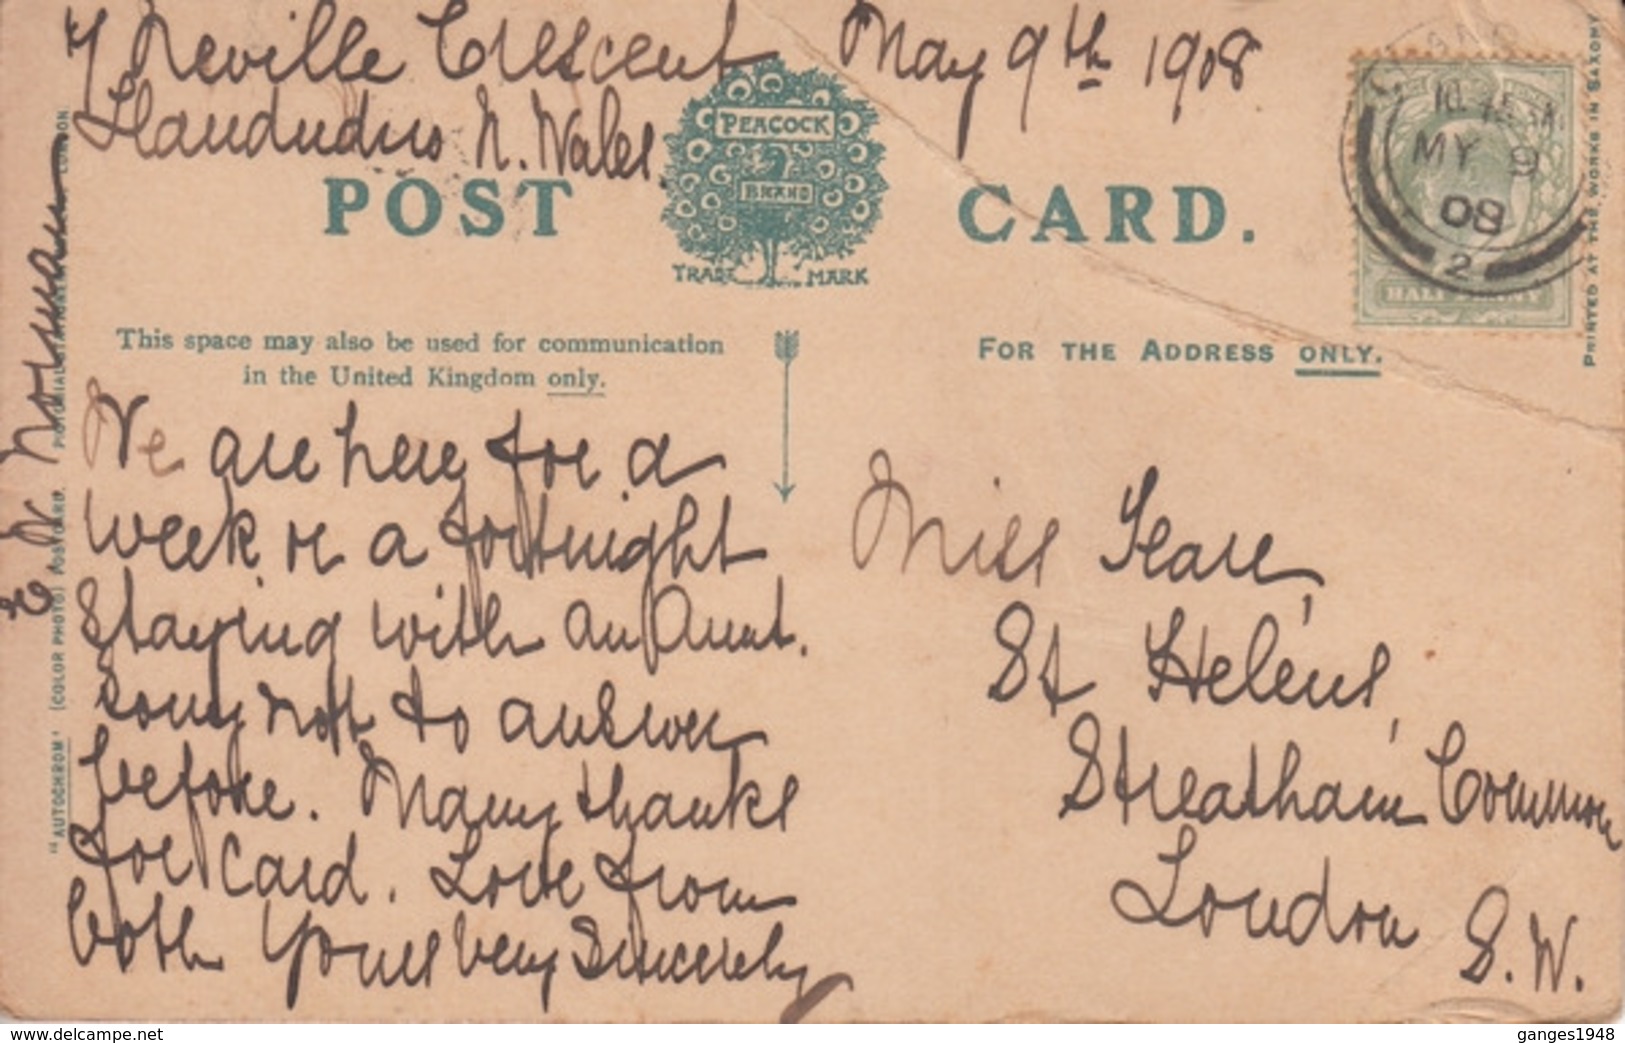 7 Neville Crescent May 9th 1908
Llandudno N. Wales.
PEACOCK
BRAND
TRADE MARK
POST CARD.
MY 9
08
2
HALF PENNY
PRINTED AT THE WORKS IN SAXONY
This space may also be used for communication
in the United Kingdom only.
FOR THE ADDRESS ONLY.
We are here for a
week or a fortnight
staying with an Aunt.
Sorry not to answer
before. Many thanks
for card. Love from
both Yours very Sincerely
E N Norman
Miss Seare,
St Helens,
Streatham Common
London S.W.
"AUTOCHROM" (COLOR PHOTO) POSTCARD.
LONDON
delcampe.net
ganges1948